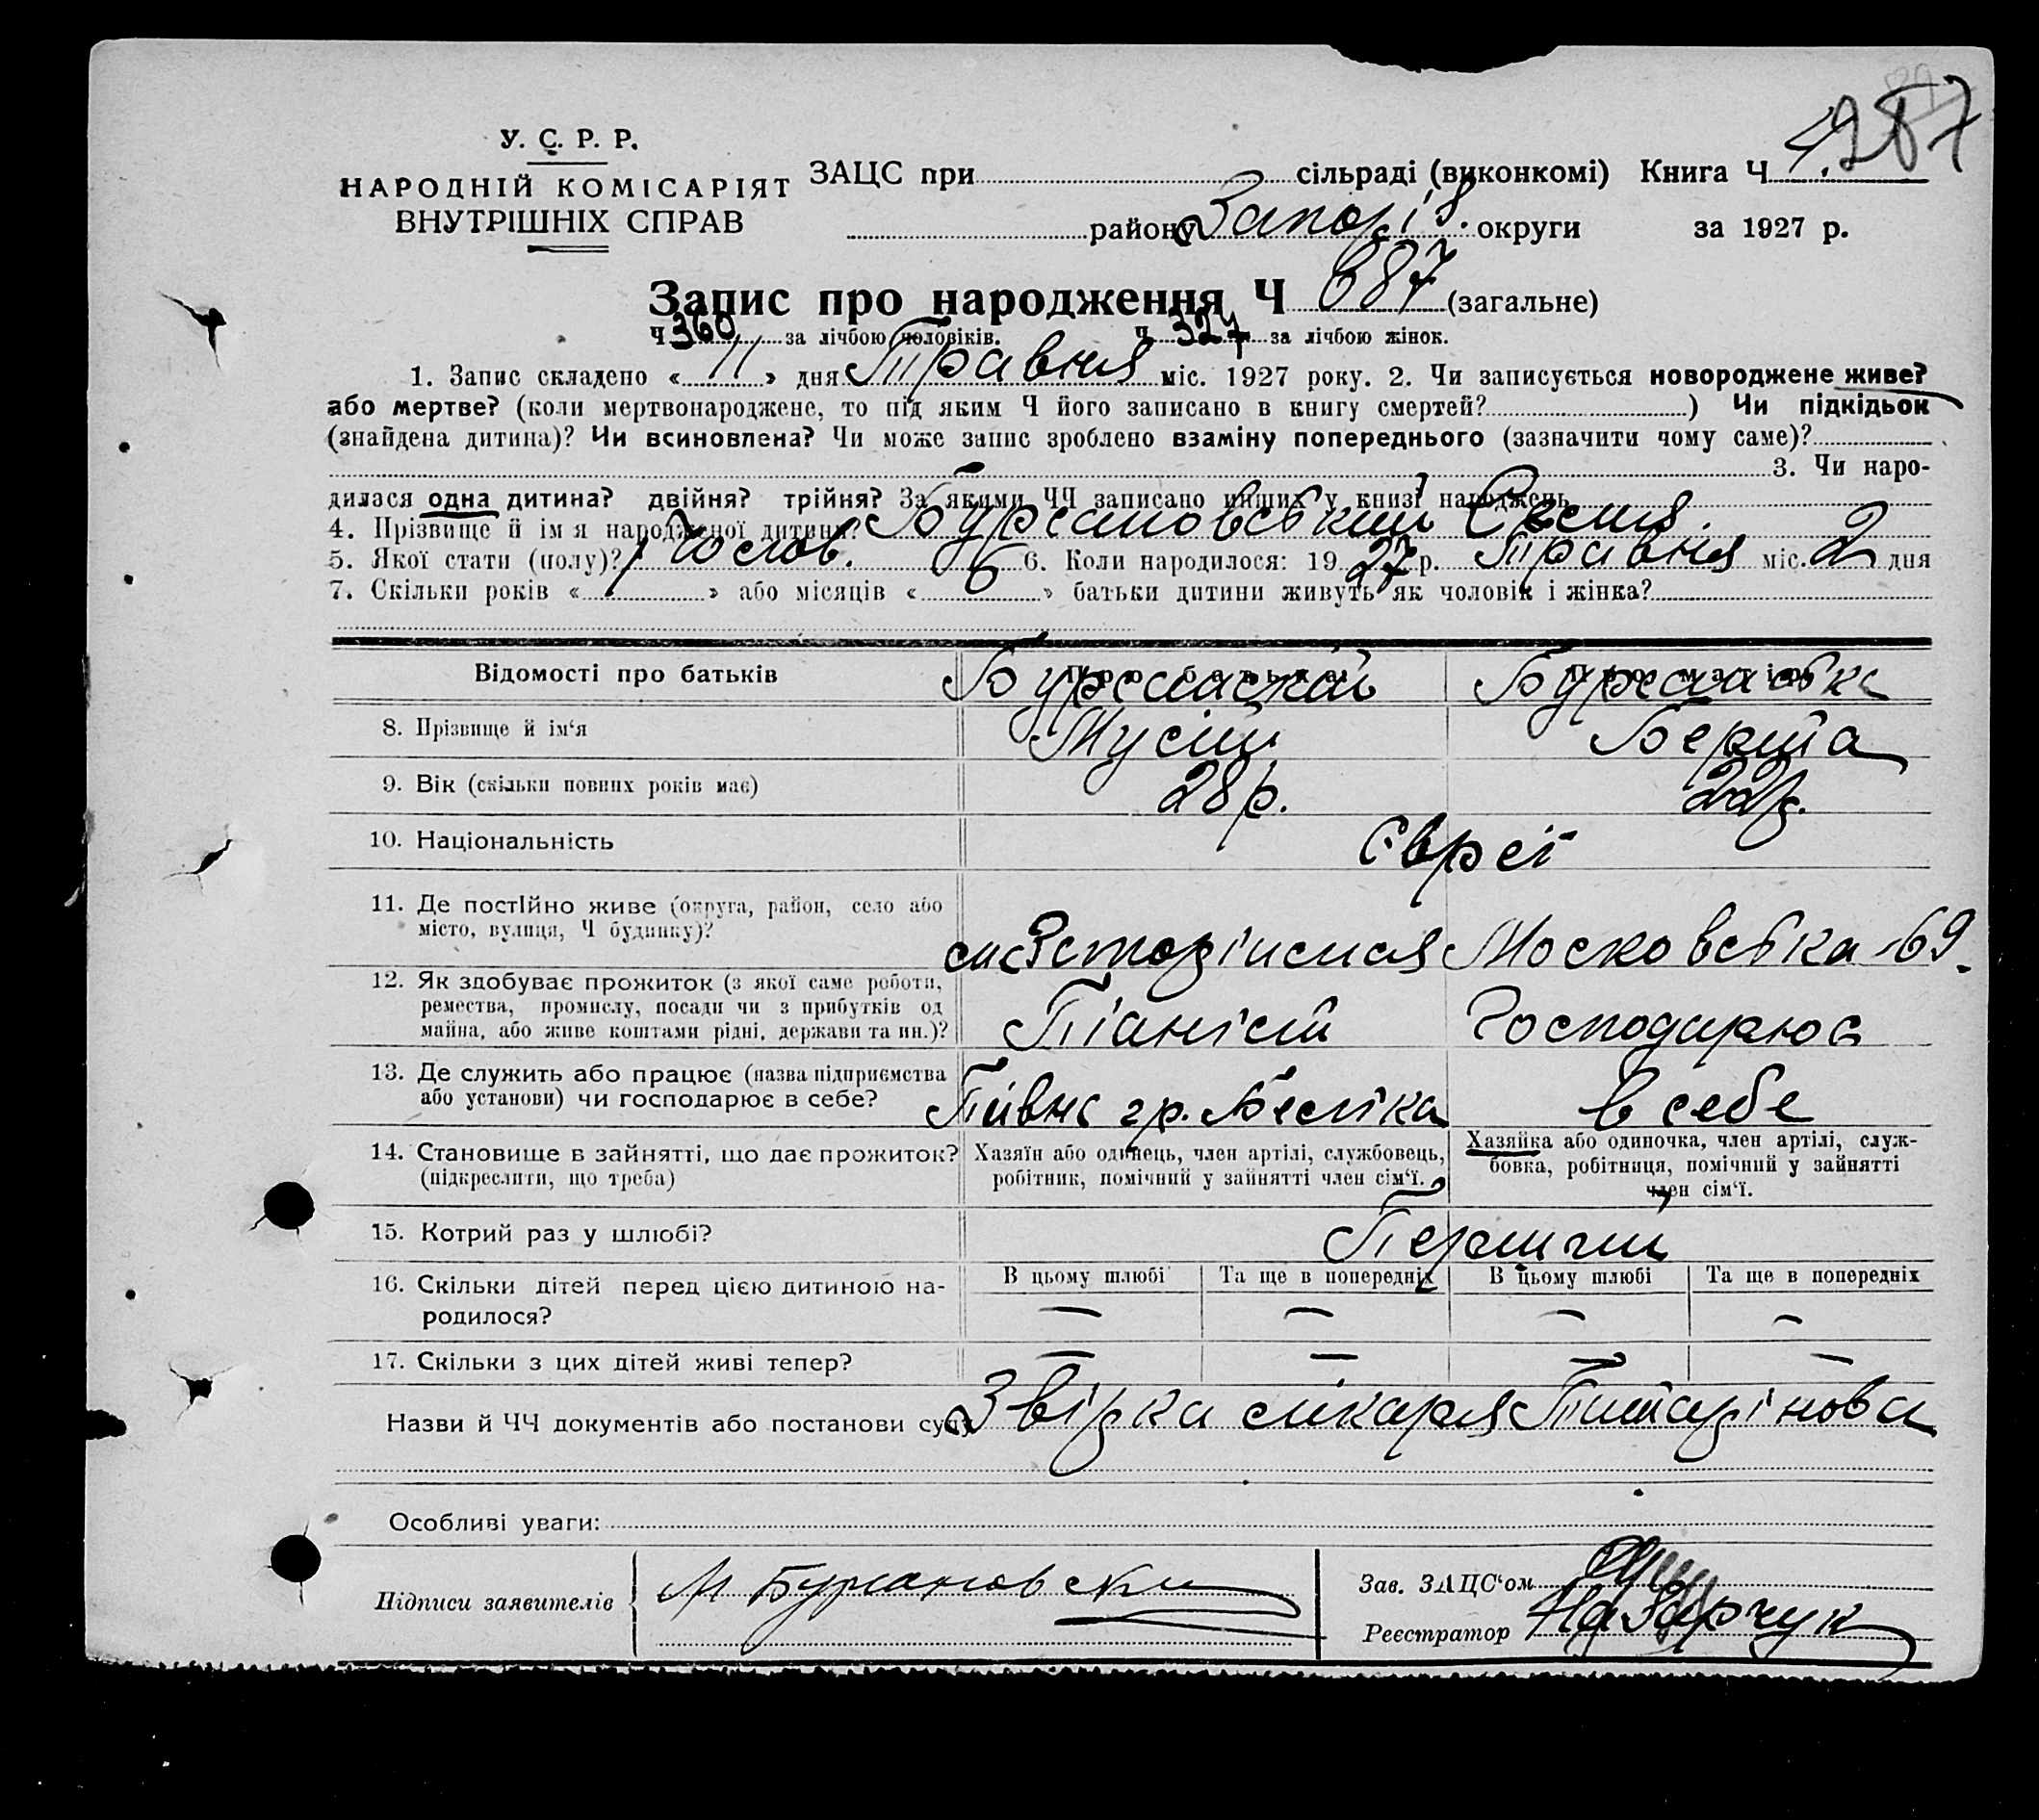 287
У. С. Р. Р.
НАРОДНІЙ КОМІСАРІЯТ
ВНУТРІШНІХ СПРАВ
ЗАЦС при сільраді (виконкомі) Книга Ч 4.
району Запоріз. округи за 1927 р.
Запис про народження Ч 687 (загальне)
Ч 360 за лічбою чоловіків. Ч 327 за лічбою жінок.
1. Запис складено « 11 » дня Травня міс. 1927 року. 2. Чи записується новороджене живе?
або мертве? (коли мертвонароджене, то під яким Ч його записано в книгу смертей? ) Чи підкідьок
(знайдена дитина)? Чи всиновлена? Чи може запис зроблено взаміну попереднього (зазначити чому саме)?
3. Чи наро-
дилася одна дитина? двійня? трійня? За якими ЧЧ записано инших у книзі народжень
4. Прізвище й імя народженої дитини?
5. Якої стати (полу)? Чолов. 6. Коли народилося: 19 27 р. Травня міс. 2 дня
7. Скільки років « » або місяців « 6 » батьки дитини живуть як чоловік і жінка?
Відомості про батьків Про батька Про матір
8. Прізвище й ім‘я Мусій Берта
9. Вік (скільки повних років має) 28 р. 22 р.
10. Національність Євреї
11. Де постійно живе (округа, район, село або
місто, вулиця, Ч будинку)? Московська 69.
12. Як здобуває прожиток (з якої саме роботи,
ремества, промислу, посади чи з прибутків од
майна, або живе коштами рідні, держави та ин.)? Піаніст Господарює
13. Де служить або працює (назва підприємства
або установи) чи господарює в себе? Півна гр. в себе
14. Становище в зайнятті, що дає прожиток?
(підкреслити, що треба)
Хазяїн або одинець, член артілі, службовець,
робітник, помічний у зайнятті член сім‘ї.
Хазяйка або одиночка, член артілі, служ-
бовка, робітниця, помічний у зайнятті
член сім‘ї.
15. Котрий раз у шлюбі? Перший
16. Скільки дітей перед цією дитиною на-
родилося?
В цьому шлюбі Та ще в попередніх В цьому шлюбі Та ще в попередніх
— — — —
17. Скільки з цих дітей живі тепер? — — — —
Назви й ЧЧ документів або постанови суду Звірка лікаря
Особливі уваги:
Підписи заявителів М Бурсановский
Зав. ЗАЦС‘ом
Реєстратор Назарчук